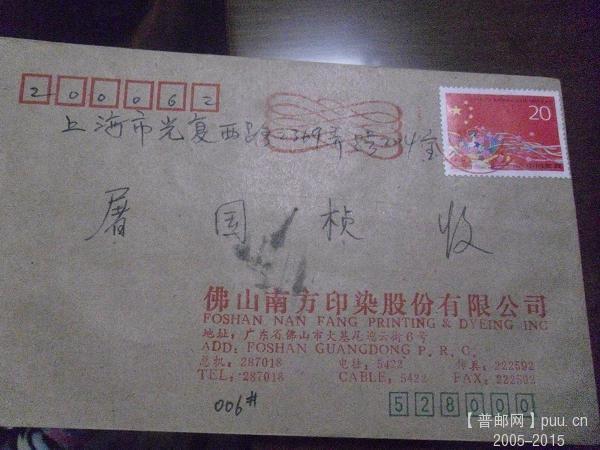 200062
20
上海市光复西路2369弄 号204室
屠国桢 收
佛山南方印染股份有限公司
FOSHAN NAN FANG PRINTING & DYEING INC
地址:广东省佛山市大基尾迎云街6号
ADD: FOSHAN GUANGDONG P. R. C.
总机:287018 电挂:5422 传真:222592
TEL:287018 CABLE:5422 FAX:222592
006#
528000
【普邮网】puu.cn
2005-2015